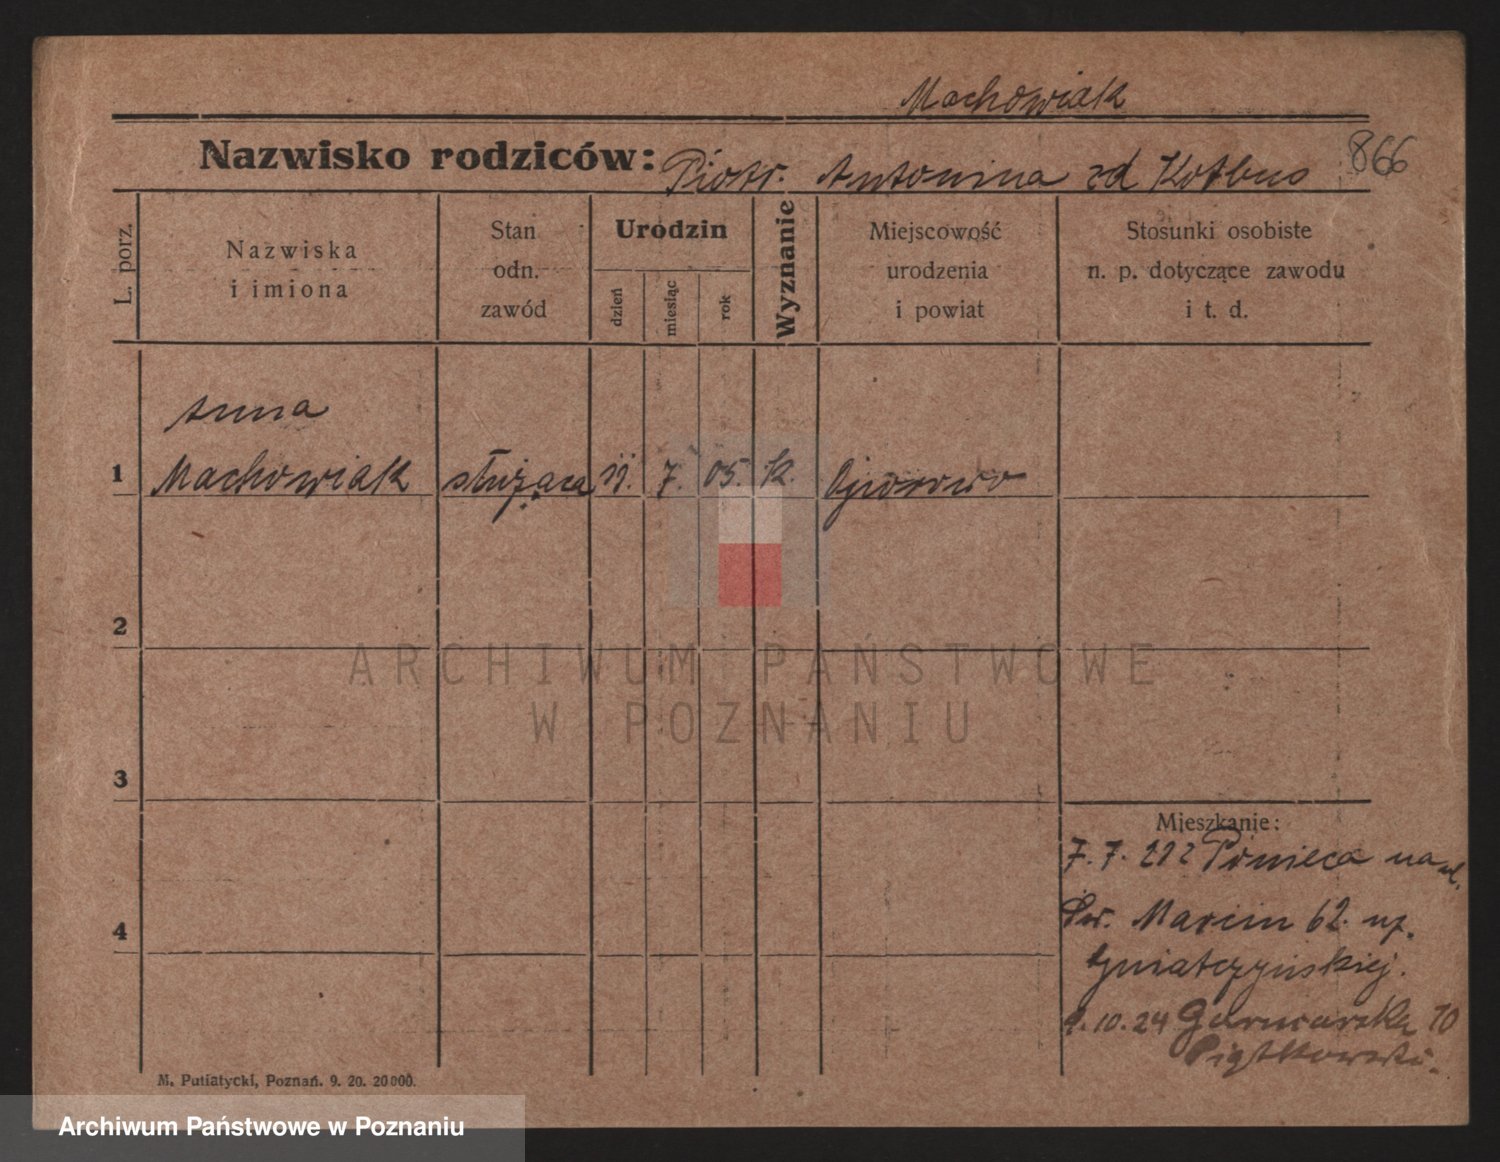 Machowiak
Nazwisko rodziców: Piotr. Antonina zd Kotbus
866
L. porz.
Nazwiska
i imiona
Stan
odn.
zawód
Urodzin
dzień
miesiąc
rok
Wyznanie
Miejscowość
urodzenia
i powiat
Stosunki osobiste
n. p. dotyczące zawodu
i t. d.
Anna
1 Machowiak służąca 11. 7. 05. k.
2
ARCHIWUM PAŃSTWOWE
W POZNANIU
3
Mieszkanie:
7. 7. Ponieca na ul.
4 Św. Marcin 62. up.
9.10.24 Garncarska 10
Piątkowski.
M. Putiatycki, Poznań. 9. 20. 20000.
Archiwum Państwowe w Poznaniu